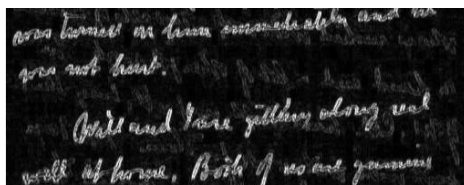 was turned in home immediately and
was not hurt.
Will and I are getting along real
well at home. Both of us are